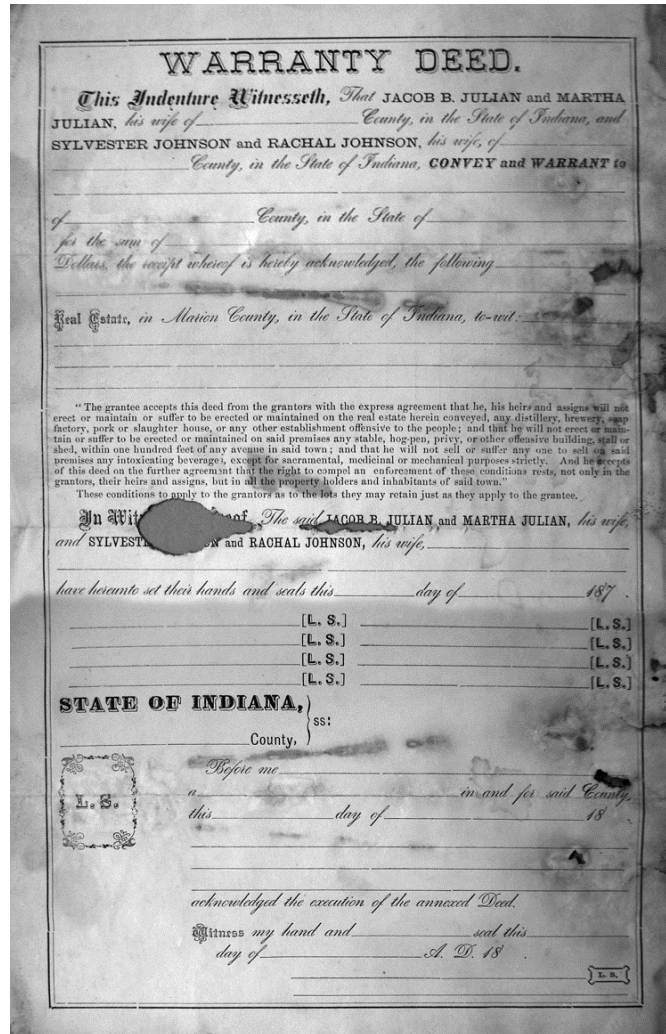 WARRANTY DEED.
This Indenture Witnesseth, That JACOB B. JULIAN and MARTHA
JULIAN, his wife of County, in the State of Indiana, and
SYLVESTER JOHNSON and RACHAL JOHNSON, his wife, of
County, in the State of Indiana, CONVEY and WARRANT to
of County, in the State of
for the sum of
Dollars, the receipt whereof is hereby acknowledged, the following
Real Estate, in Marion County, in the State of Indiana, to-wit:
"The grantee accepts this deed from the grantors with the express agreement that he, his heirs and assigns will not
erect or maintain or suffer to be erected or maintained on the real estate herein conveyed, any distillery, brewery, soap
factory, pork or slaughter house, or any other establishment offensive to the people; and that he will not erect or main-
tain or suffer to be erected or maintained on said premises any stable, hog-pen, privy, or other offensive building, stall or
shed, within one hundred feet of any avenue in said town; and that he will not sell or suffer any one to sell on said
premises any intoxicating beverages, except for sacramental, medicinal or mechanical purposes strictly. And he accepts
of this deed on the further agreement that the right to compel an enforcement of these conditions rests, not only in the
grantors, their heirs and assigns, but in all the property holders and inhabitants of said town."
These conditions to apply to the grantors as to the lots they may retain just as they apply to the grantee.
In The said JACOB B. JULIAN and MARTHA JULIAN, his wife,
and and RACHAL JOHNSON, his wife,
have hereunto set their hands and seals this day of 187 .
[L. S.] [L. S.]
[L. S.] [L. S.]
[L. S.] [L. S.]
[L. S.] [L. S.]
STATE OF INDIANA,
ss:
County,
Before me
L. S.
a in and for said County,
this day of 18
acknowledged the execution of the annexed Deed.
Witness my hand and seal this
day of A. D. 18 .
L. S.